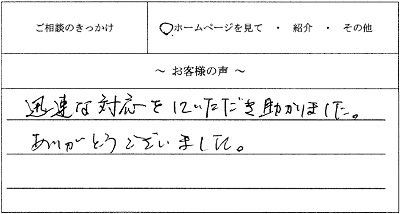 ご相談のきっかけ ホームページを見て ・ 紹介 ・ その他
～ お客様の声 ～
迅速な対応をいただき助かりました。
ありがとうございました。